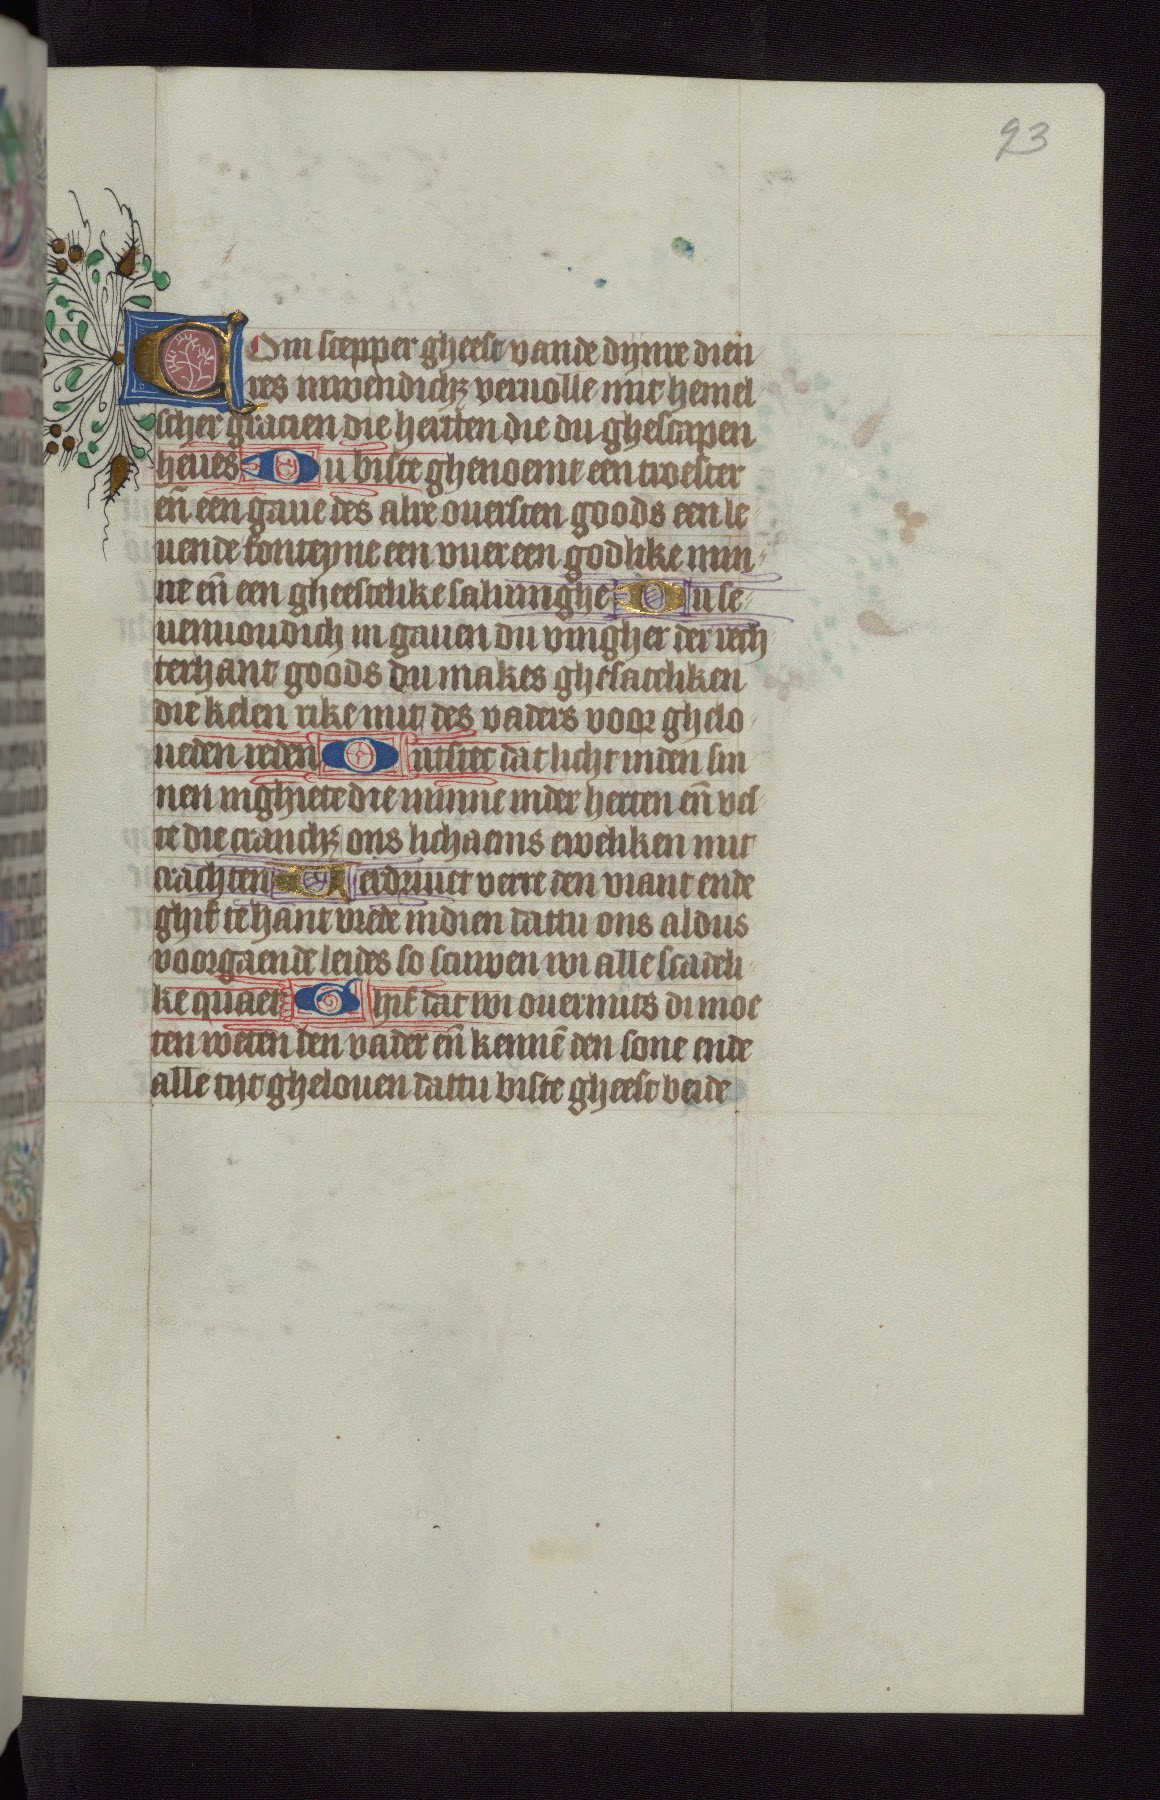 23
COm scepper gheest vande dijnre dien
res inwendichz vervolle mit hemel
scher gracien die herten die du ghescapen
heues Du biste ghenoemt een troester
en̄ een gaue des alre ouersten goods een le
uende fonteyne een vuer een godlike min
ne en̄ een gheestelike saluinghe Du se
uenuoudich in gauen du vingher der rech
terhant goods du makes ghesateliken
die kelen rike mit des vaders voor ghelo
ueden reden Ontstect dat licht inden sin
nen inghiete die minne inder herten en̄ vest
te die cranchz ons lichaems eweliken mit
crachten Verdriuet verre den viant ende
ghif te hant vrede indien dattu ons aldus
voorgaende leides so scuwen wi alle scadeli
ke quaet Ghif dat wi ouermits di moe
ten weten den vader en̄ kennē den sone ende
alle tijt ghelouen dattu biste gheest beide